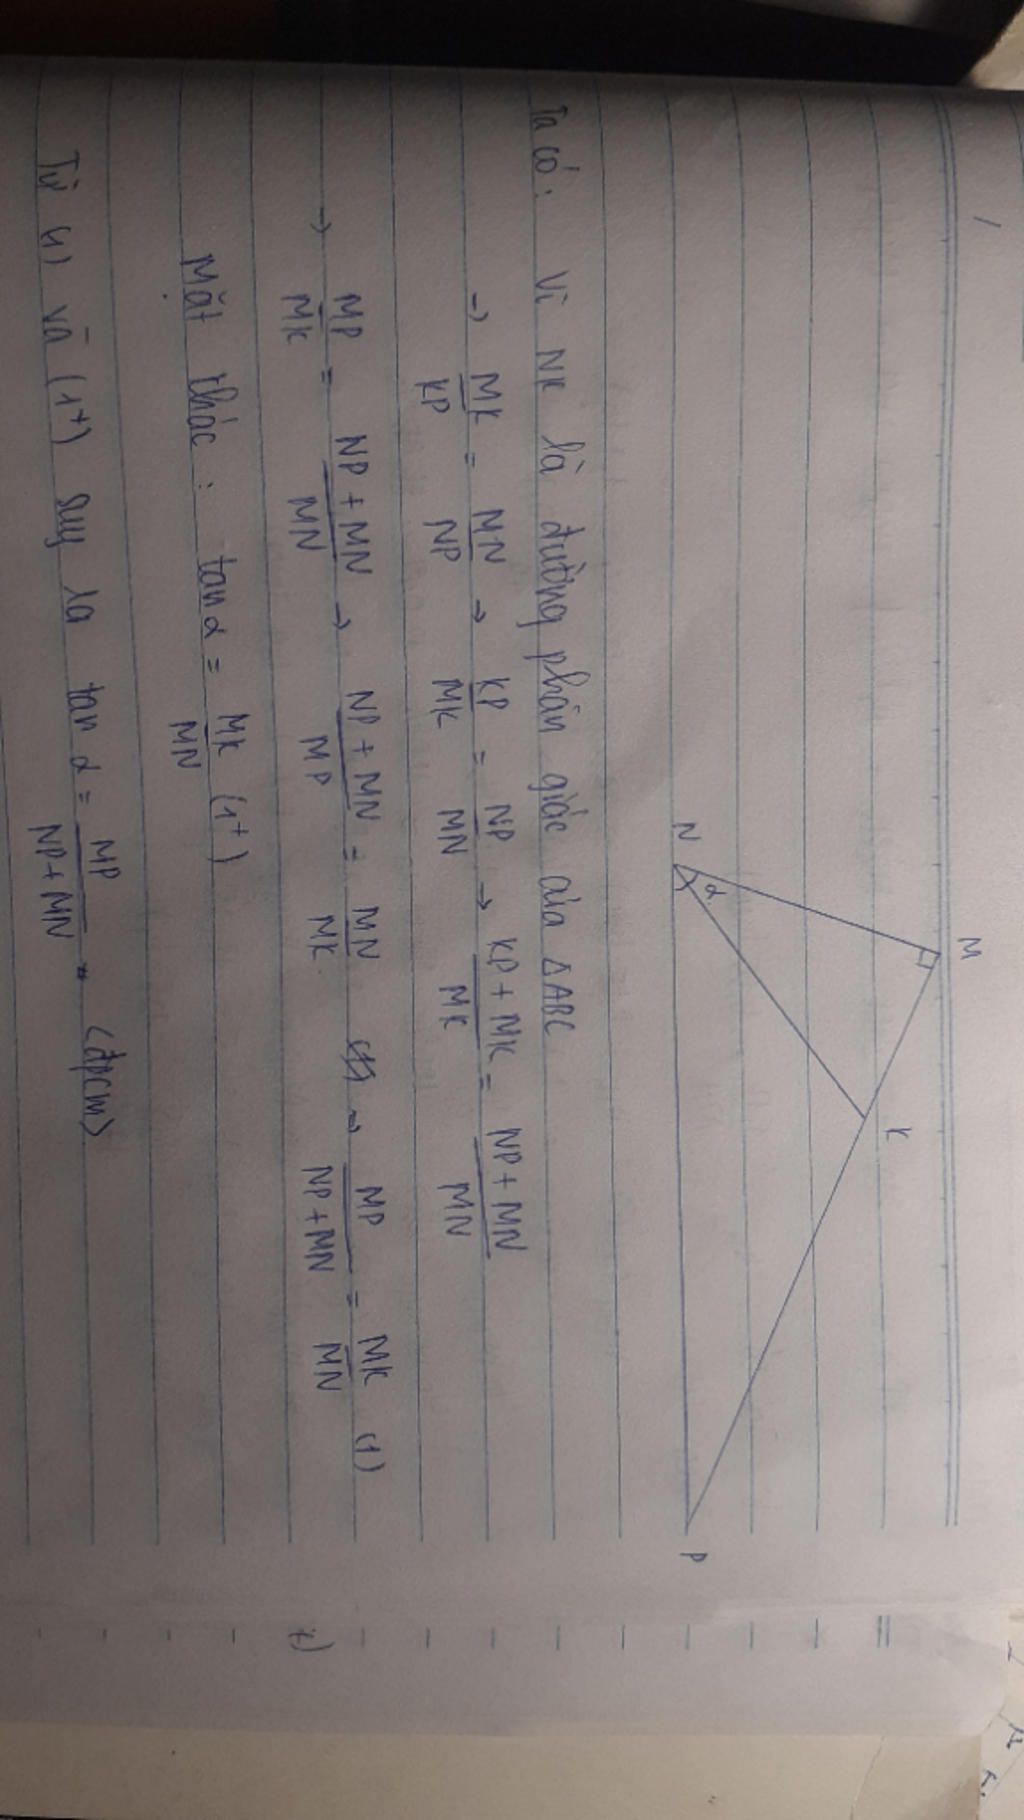 M
K
N
α
P
Ta có: Vì NK là đường phân giác của ΔABC
→ MK/KP = MN/NP → KP/MK = NP/MN → KP + MK/MK = NP + MN/MN
→ MP/MK = NP + MN/MN → NP + MN/MP = MN/MK → MP/NP + MN = MK/MN (1)
Mặt khác: tan α = MK/MN (1+)
Từ (1) và (1+) suy ra tan α = MP/NP + MN. <đpcm>
7)